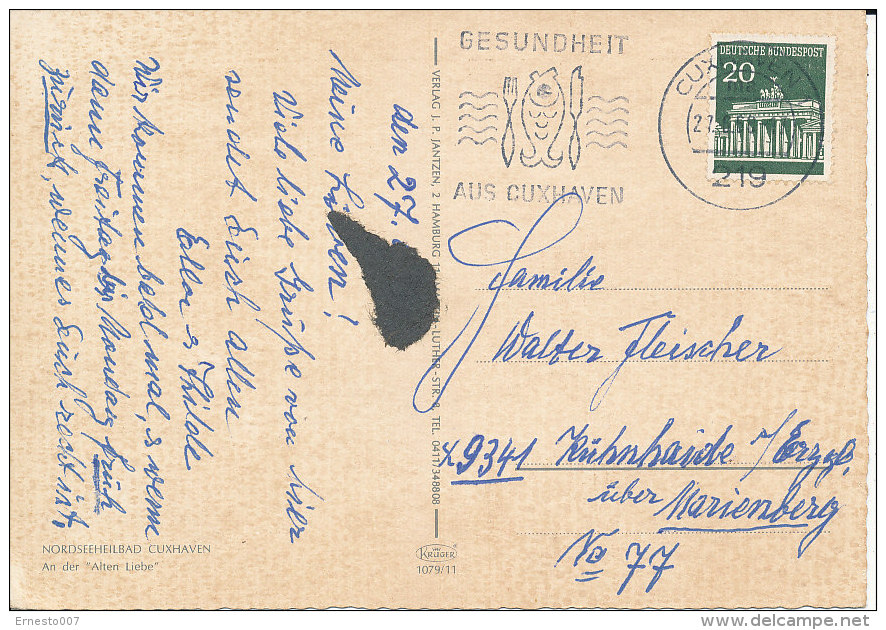 den 27.
Meine Lieben!
Viele liebe Grüße von hier
sendet Euch allen
Ella & Hilde
Wir kommen bald mal, & wenn
dann Freitag bis Montag früh
zurück, wenn es Euch recht ist.
NORDSEEHEILBAD CUXHAVEN
An der "Alten Liebe"
VERLAG J. P. JANTZEN, 2 HAMBURG 11, -LUTHER-STR. 8, TEL. 0411/348808
KRÜGER
1079/11
GESUNDHEIT
AUS CUXHAVEN
CUXHAVEN
219
DEUTSCHE BUNDESPOST
20
Familie
Walter Fleischer
x 9341 Kühnhaide /Erzgb.
über Marienberg
No 77
Ernesto007
delcampe.net